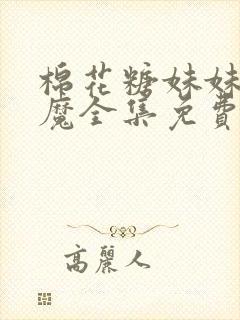 棉花糖妹妹
魔全集免費
高麗人